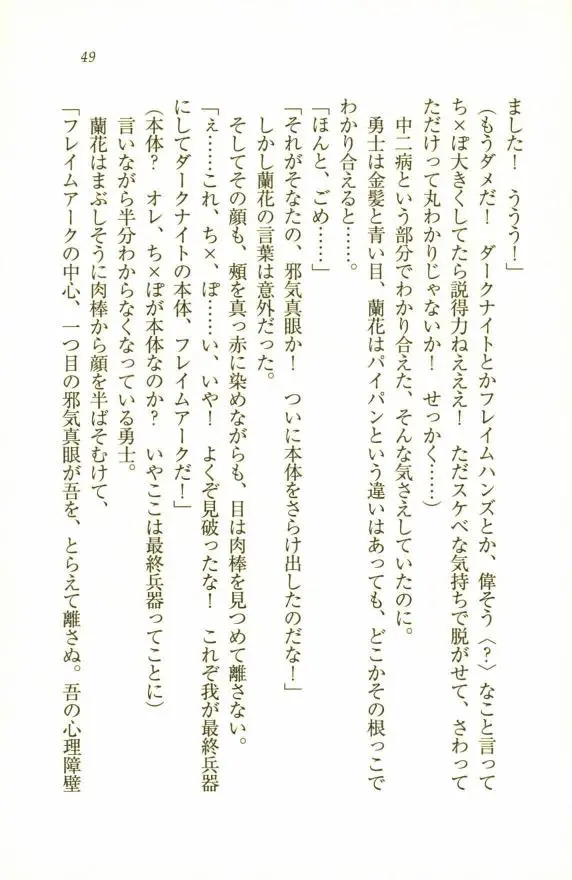 49
ました！　ううう！」
（もうダメだ！　ダークナイトとかフレイムハンズとか、偉そう〈？〉なこと言って
ち×ぽ大きくしてたら説得力ねえええ！　ただスケベな気持ちで脱がせて、さわって
ただけって丸わかりじゃないか！　せっかく……）
中二病という部分でわかり合えた、そんな気さえしていたのに。
勇士は金髪と青い目、蘭花はパイパンという違いはあっても、どこかその根っこで
わかり合えると……。
「ほんと、ごめ……」
「それがそなたの、邪気真眼か！　ついに本体をさらけ出したのだな！」
しかし蘭花の言葉は意外だった。
そしてその顔も、頬を真っ赤に染めながらも、目は肉棒を見つめて離さない。
「ぇ……これ、ち×、ぽ……い、いや！　よくぞ見破ったな！　これぞ我が最終兵器
にしてダークナイトの本体、フレイムアークだ！」
（本体？　オレ、ち×ぽが本体なのか？　いやここは最終兵器ってことに）
言いながら半分わからなくなっている勇士。
蘭花はまぶしそうに肉棒から顔を半ばそむけて、
「フレイムアークの中心、一つ目の邪気真眼が吾を、とらえて離さぬ。吾の心理障壁